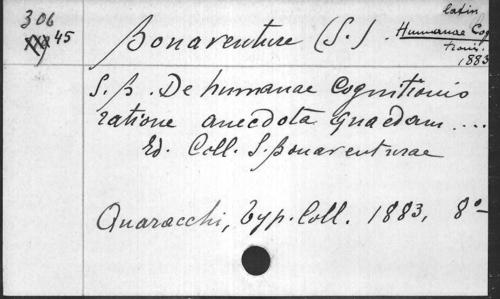 306
45
latin
Bonaventure (S.) Humanae Cog
tionis
1883
S. B. De humanae Cognitionis
ratione anecdota quaedam ....
Ed. Coll. S. Bonaventurae
Quaracchi, typ. Coll. 1883, 8º